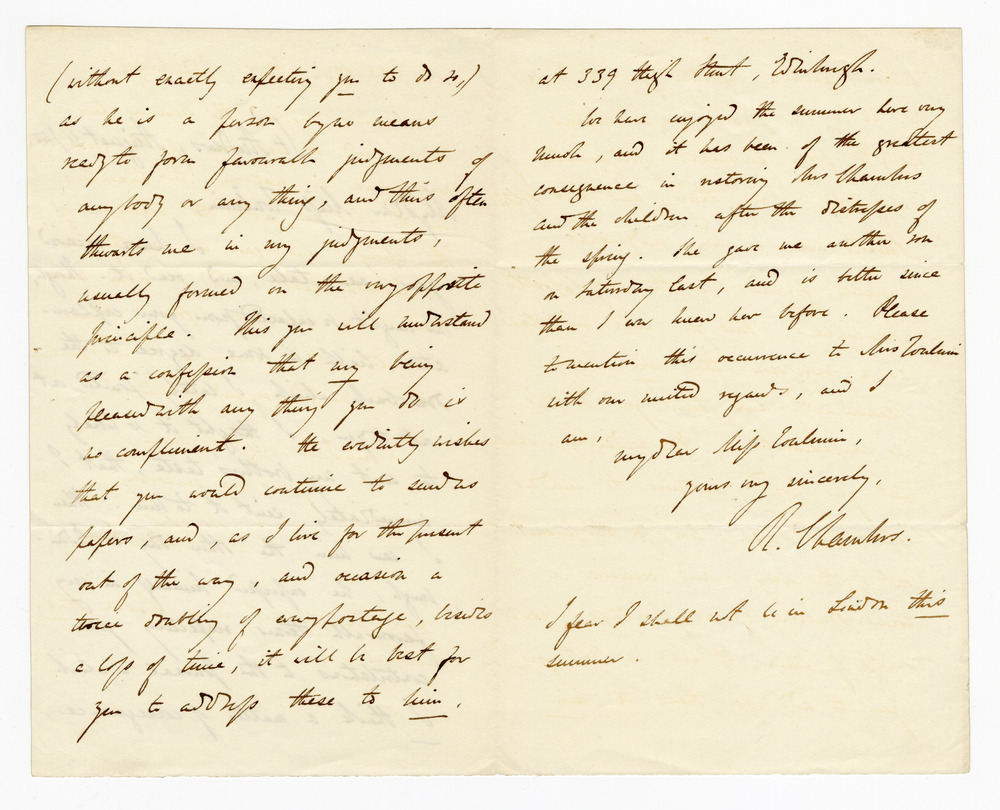 (without exactly expecting you to do so,)
as he is a person by no means
ready to form favourable judgments of
any body or any thing, and thus often
thwarts me in my judgments,
usually formed on the very opposite
principle. This you will understand
as a confession that my being
pleased with any thing you do is
no compliment. He evidently wishes
that you would continue to send us
papers, and, as I live for the present
out of the way, and occasion a
twice doubling of every postage, besides
a loss of time, it will be best for
you to address these to him,
at 339 High Street, Edinburgh.
We have enjoyed the summer here very
much, and it has been of the greatest
consequence in restoring Mrs Chambers
and the children after the distresses of
the spring. She gave me another son
on Saturday last, and is better since
than I ever knew her before. Please
to mention this occurrence to Mrs Toulmin
with our united regards, and I
am,
my dear Miss Toulmin,
yours very sincerely,
R. Chambers.
I fear I shall not be in London this
summer.